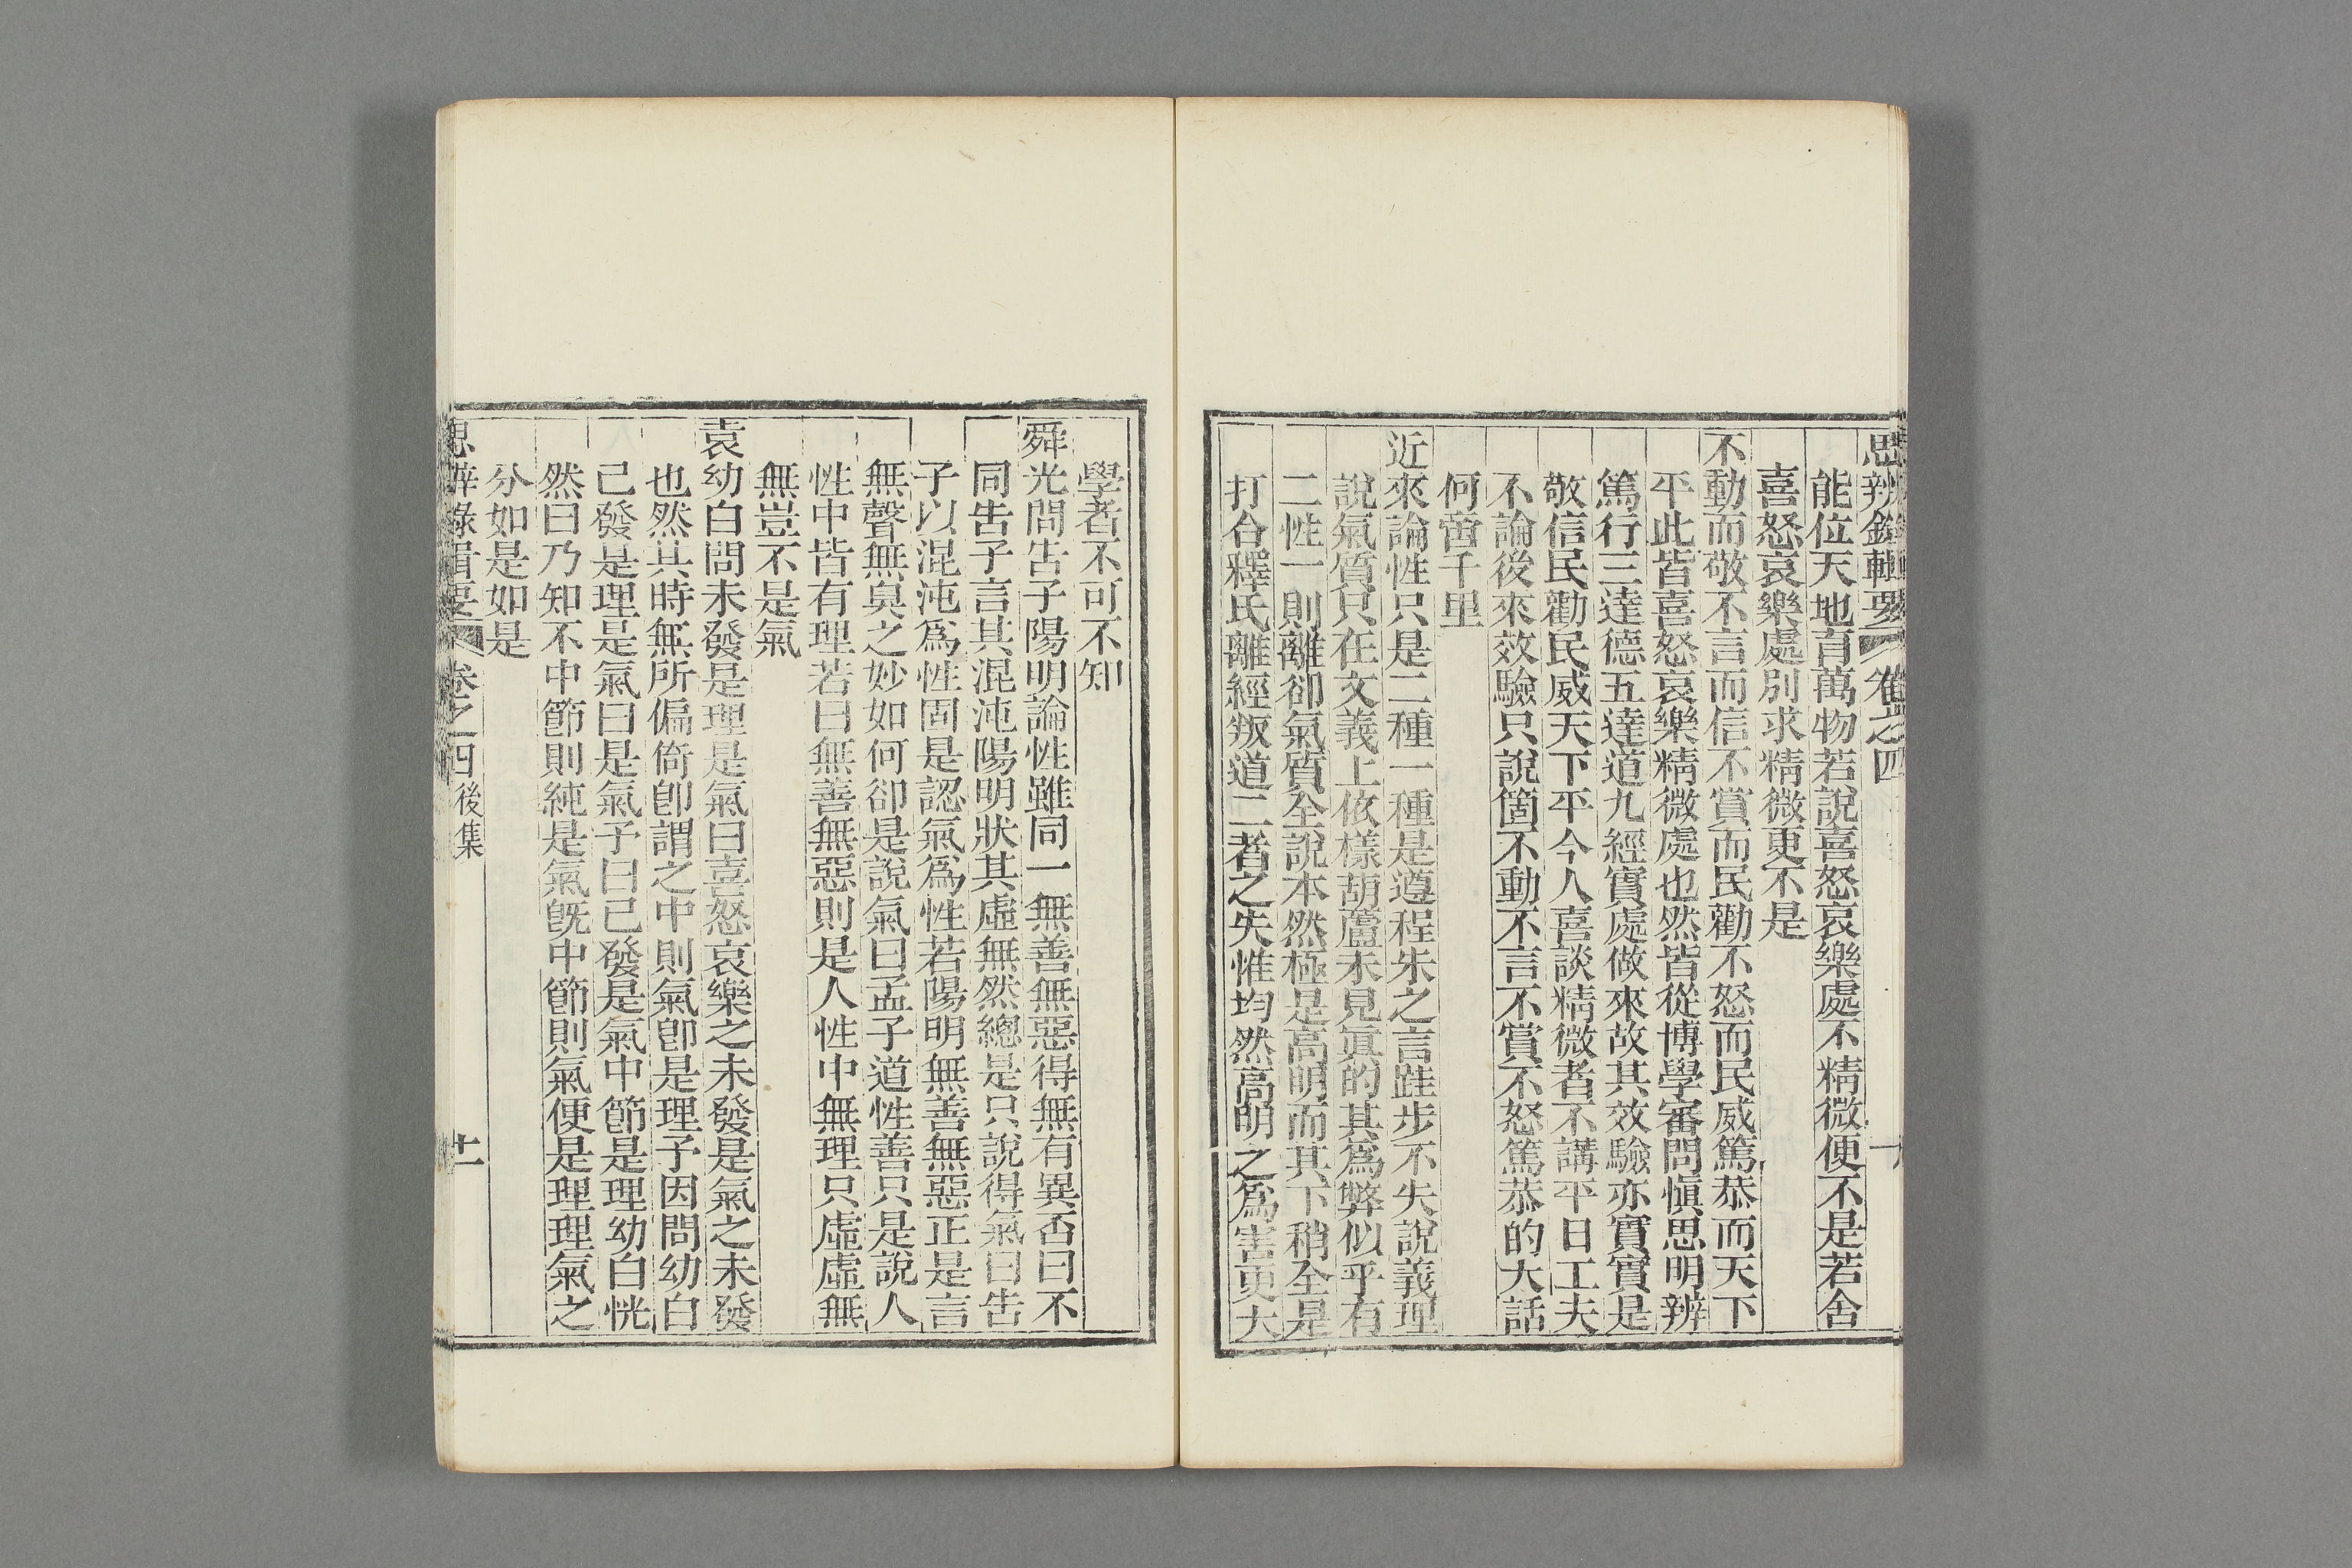 思辨錄輯要 卷之四
能位天地育萬物若說喜怒哀樂處不精微便不是若舍
喜怒哀樂處別求精微更不是
不動而敬不言而信不賞而民勸不怒而民威篤恭而天下
平此皆喜怒哀樂精微處也然皆從博學審問愼思明辨
篤行三達德五達道九經實處做來故其效驗亦實實是
敬信民勸民威天下平今人喜談精微者不講平日工夫
不論後來效驗只說箇不動不言不賞不怒篤恭的大話
何啻千里
近來論性只是二種一種是遵程朱之言跬步不失說義理
說氣質只在文義上依樣葫蘆未見眞的其爲弊似乎有
二性一則離卻氣質全說本然極是高明而其下稍全是
打合釋氏離經叛道二者之失惟均然高明之爲害更大
學者不可不知
舜光問告子陽明論性雖同一無善無惡得無有異否曰不
同告子言其混沌陽明狀其虛無然總是只說得氣曰告
子以混沌爲性固是認氣爲性若陽明無善無惡正是言
無聲無臭之妙如何卻是說氣曰孟子道性善只是說人
性中皆有理若曰無善無惡則是人性中無理只虛虛無
無豈不是氣
袁幼白問未發是理是氣曰喜怒哀樂之未發是氣之未發
也然其時無所偏倚卽謂之中則氣卽是理予因問幼白
已發是理是氣曰是氣予曰已發是氣中節是理幼白恍
然曰乃知不中節則純是氣旣中節則氣便是理理氣之
分如是如是
思辨錄輯要 卷之四 後集 十一